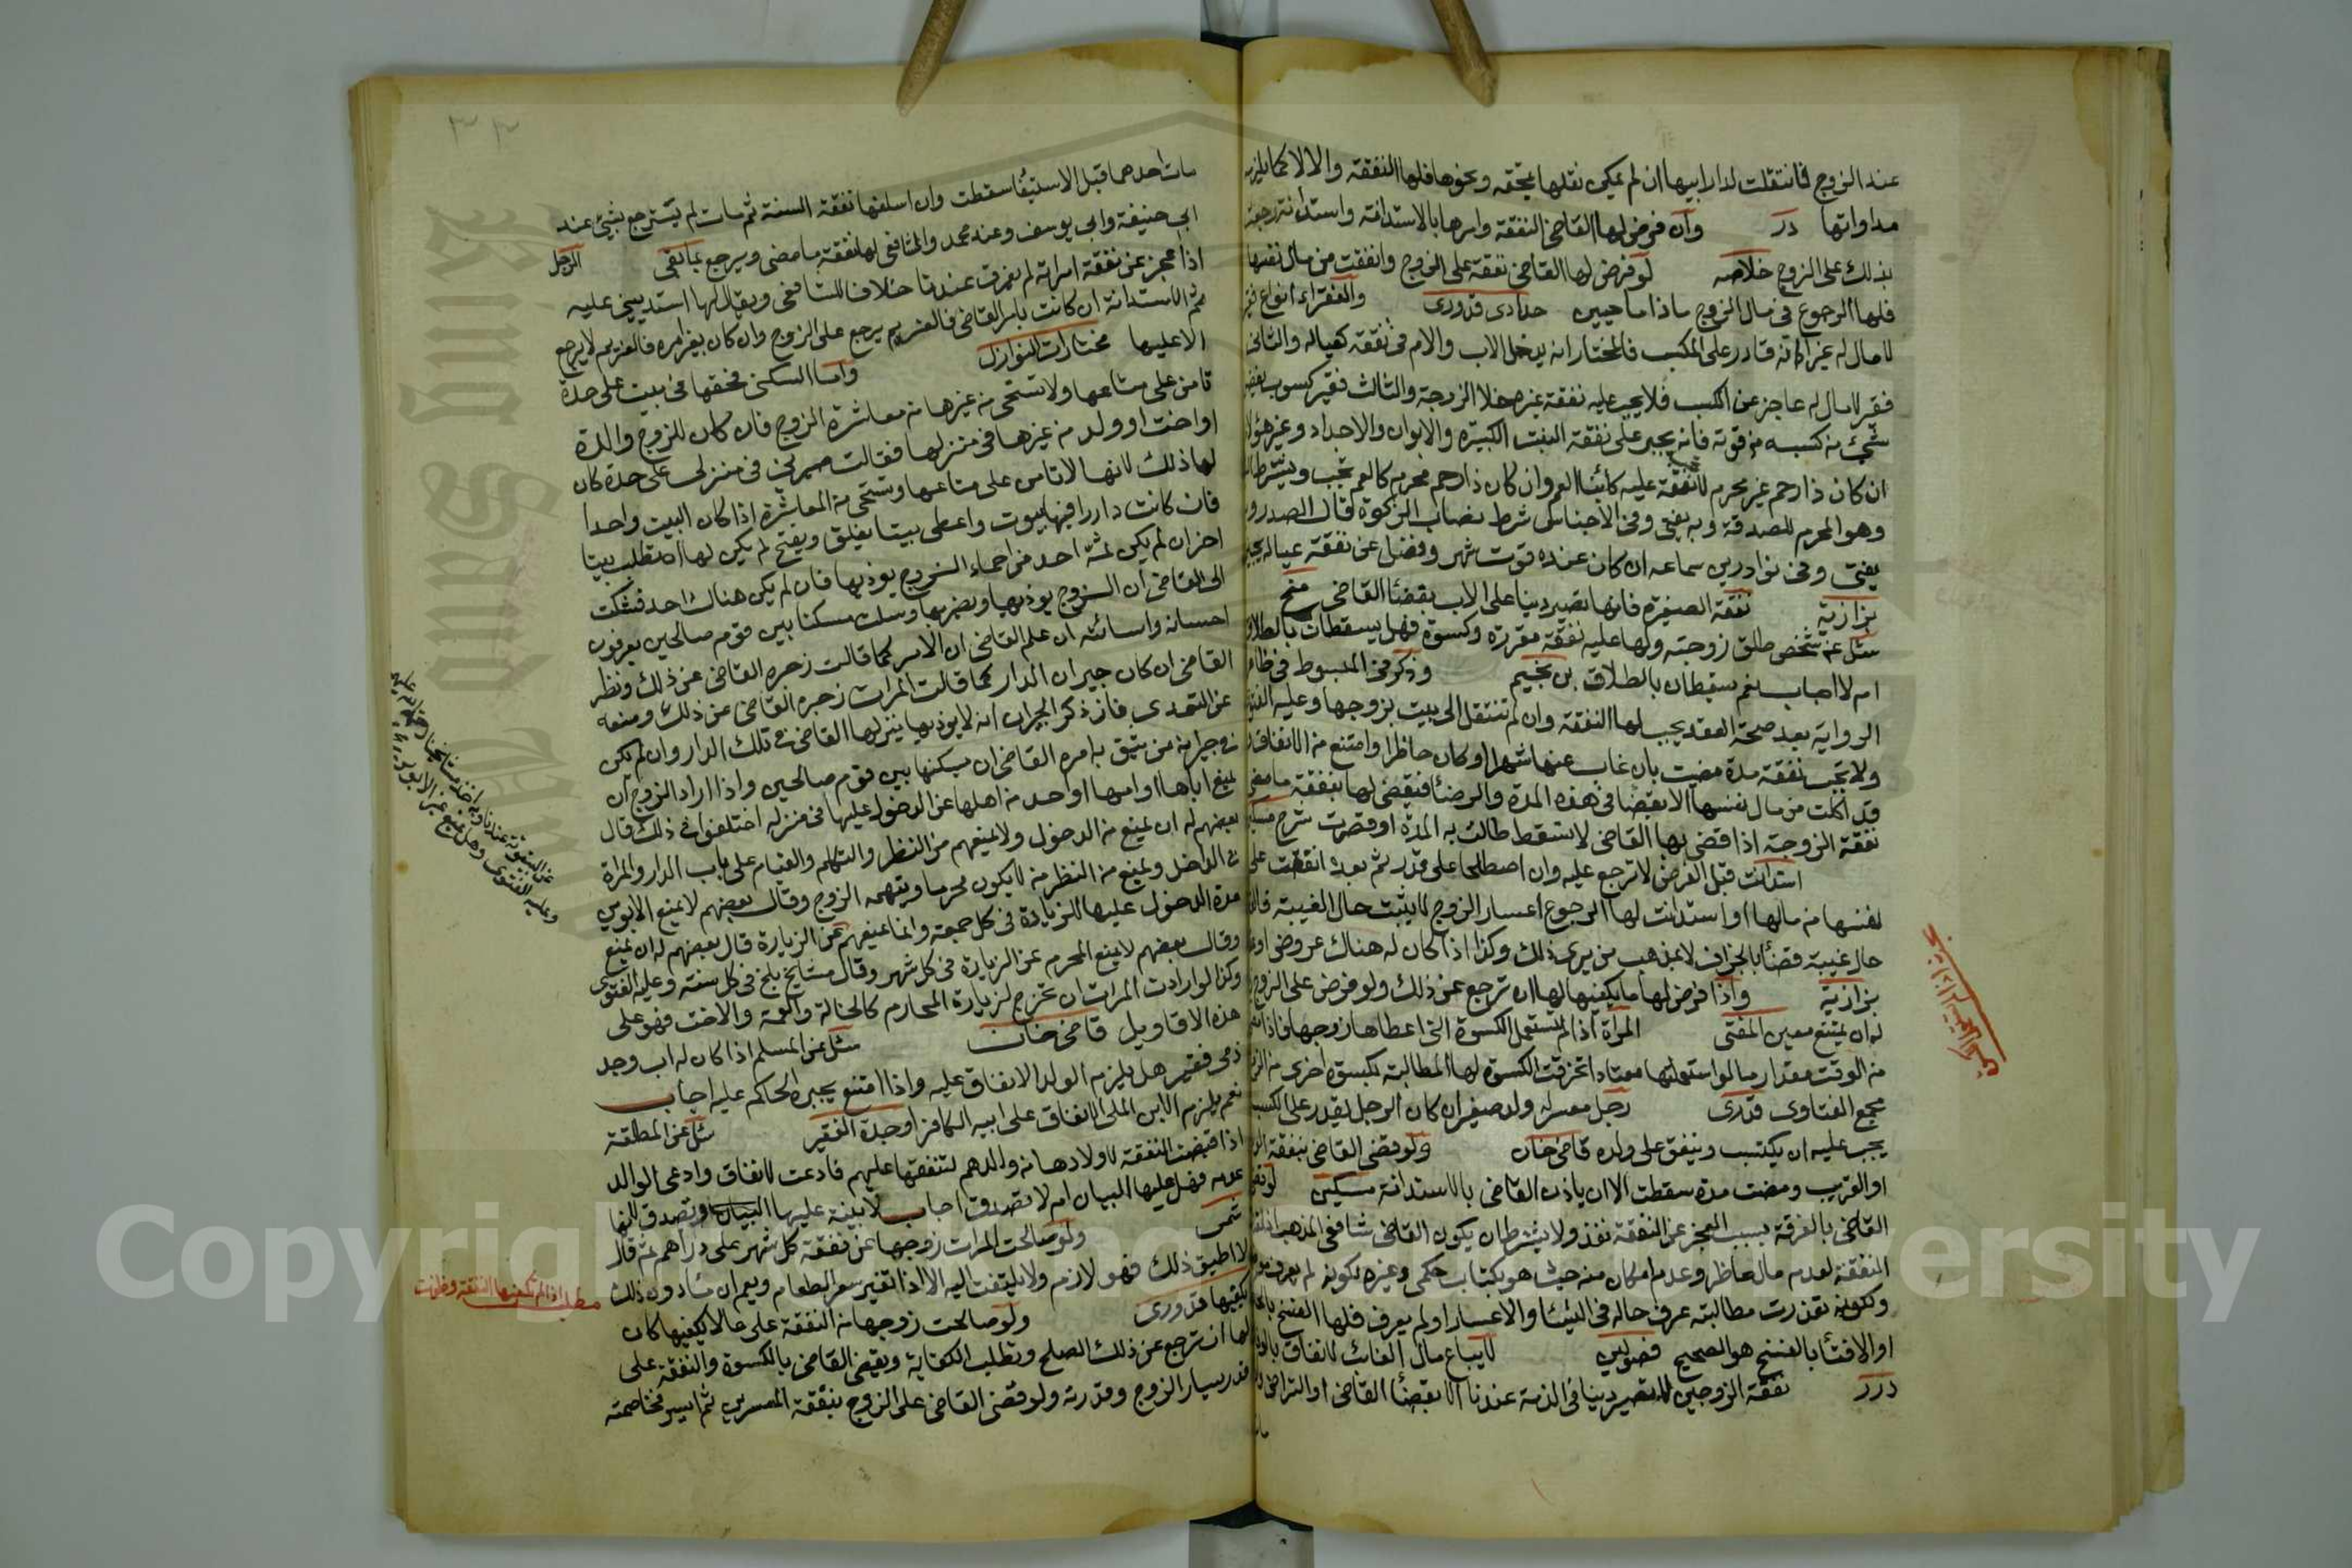 عند الزوج فانتقلت لدار ابيها ان لم يمكن نقلها بمحفه ونحوها فلها النفقة والا لا كما يلزمه
مداواتها در وان فرض لها القاضي النفقة وامرها بالاستدانة واستدانة رجعت
بذلك على الزوج خلاصه لو فرض لها القاضي نفقة على الزوج وانفقت من مال نفسها
فلها الرجوع في مال الزوج ماداما حيين حدادى قدورى والفقراء انواع فقير
لا مال له غير انه قادر على المكسب فالمختار انه يدخل الاب والام في نفقة كعياله والثانى
فقير لا مال له عاجز عن الكسب فلا يجب عليه نفقة غيره خلا الزوجة والثالث فقير كسوب يفضل
شيئ من كسبه من قوته فانه يجبر على نفقة البنت الكبيره والابوان والاجداد وغير هؤلا
ان كان ذا رحم غير محرم لا نفقة عليه كابنا العم وان كان ذا رحم محرم كالعم تجب ويشترط
وهو المحرم للصدقة وبه يفتى وفي الاجناس شرط نصاب الزكوة قال الصدر و
يفتى وفى نوادر بن سماعه ان كان عنده قوت شهر وفضل عن نفقة عياله يجبر
بزازية نفقة الصغيرة فانها تصير دينا على الاب بقضئا القاضى منح
سئل عن شخص طلق زوجته ولها عليه نفقة مقررة وكسوة فهل يسقطان بالطلاق
ام لا اجاب نعم سقطان بالطلاق بن نجيم وذكر في المبسوط في ظاهر
الرواية بعد صحة العقد يجب لها النفقة وان لم تنتقل الى بيت بزوجها وعليه الفتوى
ولا تجب نفقة مدة مضيت بان غاب عنها شهرا او كان حاظرا وامتنع من الانفاق
قد اكلت من مال نفسها الا بقضا في هذه المدة والرضئا فيقضى لها بنفقة ما مضى
نفقة الزوجة اذا قضى بها القاضى لا تسقط طالت به المدة او قصرت شرح مسكين
استدانت قبل الفرض لا ترجع عليه وان اصطلحا على قدر ثم بعده انفقت على
نفسها من مالها او استدانت لها الرجوع اعسار الزوج لا يثبت حال الغيبة
حال غيبة قضئا بالجزاف لا بمذهب من يرى ذلك وكذا اذا كان له هناك عروض
بزازية واذا فرض لها ما يكفيها لها ان ترجع عن ذلك ولو فرض على الزوج
له ان يمتنع معين المفتى المرأة اذا لم تستعمل الكسوة التى اعطاها زوجها فاذا
من الوقت مقدار ما لو استعملتها معتادا تخرقت الكسوة لها المطالبة بكسوة اخرى
مجمع الفتاوى قدرى رجل معسر له ولد صغير ان كان الرجل يقدر على الكسب
يجب عليه ان يكتسب وينفق على ولده قاضى خان ولو قضى القاضى بنفقة
او القريب ومضت مدة سقطت الا ان ياذن القاضى بالاستدانة مسكين
القاضى بالفرقة بسبب العجز عن النفقة نفذ ولا يشترط ان يكون القاضى شافعى المذهب
النفقة لعدم مال حاظر وعدم امكان منه حيث هو بكتاب حكمى وغيره لكونه لم يعرف
ولكونه تعذرت مطالبته عرف حاله في اليسار والاعسار او لم يعرف فلها الفسخ
او الافتئا بالفسخ هو الصحيح فصولين لا يباع مال الغائب لانفاق
درر نفقة الزوجين لا تصير دينا في الذمة عندنا الا بقضئا القاضى او التراضى
مات احدهما قبل الاستيفا سقطت وان اسلفها نفقة السنة ثم مات لم يسترجع بشيئ عند
ابى حنيفة وابى يوسف وعند محمد والشافعى لها نفقة ما مضى ويرجع بما بقى الرجل
اذا عجز عن نفقة امراته لم يفرق عندنا خلاف للشافعى ويقال لها استدينى عليه
ثم الاستدانة ان كانت بامر القاضى فالغريم يرجع على الزوج وان كان بغير امره فالغريم لا يرجع
الا عليها مختارات النوازل واما السكنى فحقها في بيت على حدة
تامن على متاعها ولا تستحى من غيرها من معاشرة الزوج فان كان للزوج والدة
او اخت او ولد من غيرها في منزلها فقالت صيرنى في منزل على حدة كان
لها ذلك لانها لا تامن على متاعها وتستحى من المعاشرة اذا كان البيت واحدا
فان كانت دار فيها بيوت واعطى بيتا يغلق ويفتح لم يكن لها ان تطلب بيتا
اخر ان لم يكن ثمة احد من احماء الزوج يوذيها فان لم يكن هناك احد فشكت
الى القاضى ان الزوج يوذيها ويضربها وسالت مسكنا بين قوم صالحين يعرفون
احسانه واسائته ان علم القاضى ان الامر كما قالت زجره القاضى عن ذلك ونظر
القاضى ان كان جيران الدار كما قالت المرات زجره القاضى عن ذلك ومنعه
عن التعدى فان ذكر الجيران انه لا يوذيها ينزلها القاضى في تلك الدار وان لم يكن
في جيرانه من يثق به امره القاضى ان يسكنها بين قوم صالحين واذا اراد الزوج ان
يمنع اباها او امها او احد من اهلها عن الدخول عليها في منزله اختلفوا في ذلك قال
بعضهم له ان يمنع من الدخول ولا يمنعهم من النظر والتكلم والقيام على باب الدار والمراة
في الداخل ويمنع من النظر من لا يكون محرما ويتهمه الزوج وقال بعضهم لا يمنع الابوين
مدة الدخول عليها للزيادة في كل جمعة وانما يمنعهم عن الزيارة قال بعضهم له ان يمنع
وقال بعضهم لا يمنع المحرم عن الزيارة في كل شهر وقال مشايخ بلخ في كل سنة وعليه الفتوى
وكذا لو ارادت المرات ان تخرج لزيارة المحارم كالخالة والعمة والاخت فهو على
هذه الاقاويل قاضى خان سئل عن المسلم اذا كان له اب وجد
ذمى فقير هل يلزم الولد الانفاق عليه واذا امتنع يجبره الحاكم عليه اجاب
نعم يلزم الابن الملى الانفاق على ابيه الكافر او جده الفقير سئل عن المطلقة
اذا قبضت النفقة لاولادها من والدهم لتنفقها عليهم فادعت الانفاق وادعى الوالد
عدمه فهل عليها البيان ام لا تصدق اجاب لا بينة عليها البيان وتصدق لانها
ولو صالحت المرات زوجها عن نفقة كل شهر على دراهم ثم قال
لا اطيق ذلك فهو لازم ولا يلتفت اليه الا اذا تغير سعر الطعام ويعم ان ما دون ذلك
يكفيها قدورى ولو صالحت زوجها من النفقة على ما لا يكفيها كان
لها ان ترجع عن ذلك الصلح وتطلب الكفاية ويقضى القاضى بالكسوة والنفقة على
قدر يسار الزوج وقدرته ولو قضى القاضى على الزوج بنفقة المعسرين ثم ايسر فخاصمته
مطلب اذا لم تكفيها النفقة